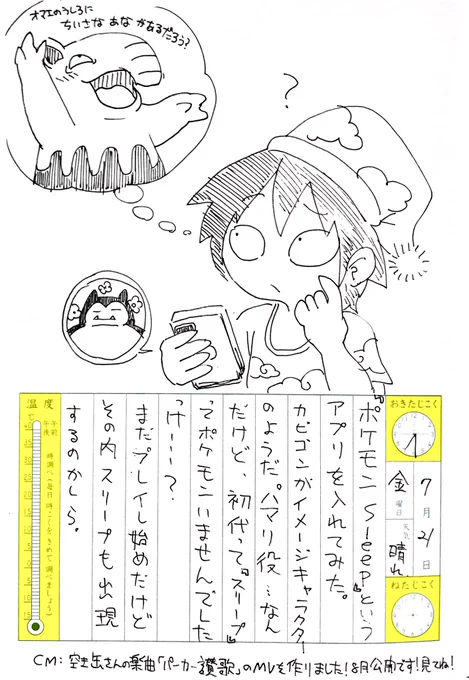 オマエのうしろに
ちいさな あな があるだろう?
?
『ポケモン Sleep』という
アプリを入れてみた。
カビゴンがイメージキャラクター
のようだ。ハマり役…なん
だけど、初代って『スリープ』
ってポケモンいませんでした
っけ…?
まだプレイし始めたけど
その内スリープも出現
するのかしら。
おきたじこく
7月21日
金曜日
天気 晴れ
ねたじこく
温度
午前
午後
時調べ(毎日 時こくをきめて 調べましょう)
CM:空き缶さんの楽曲「パーカー讃歌」のMVを作りました!8月公開です!見てね!